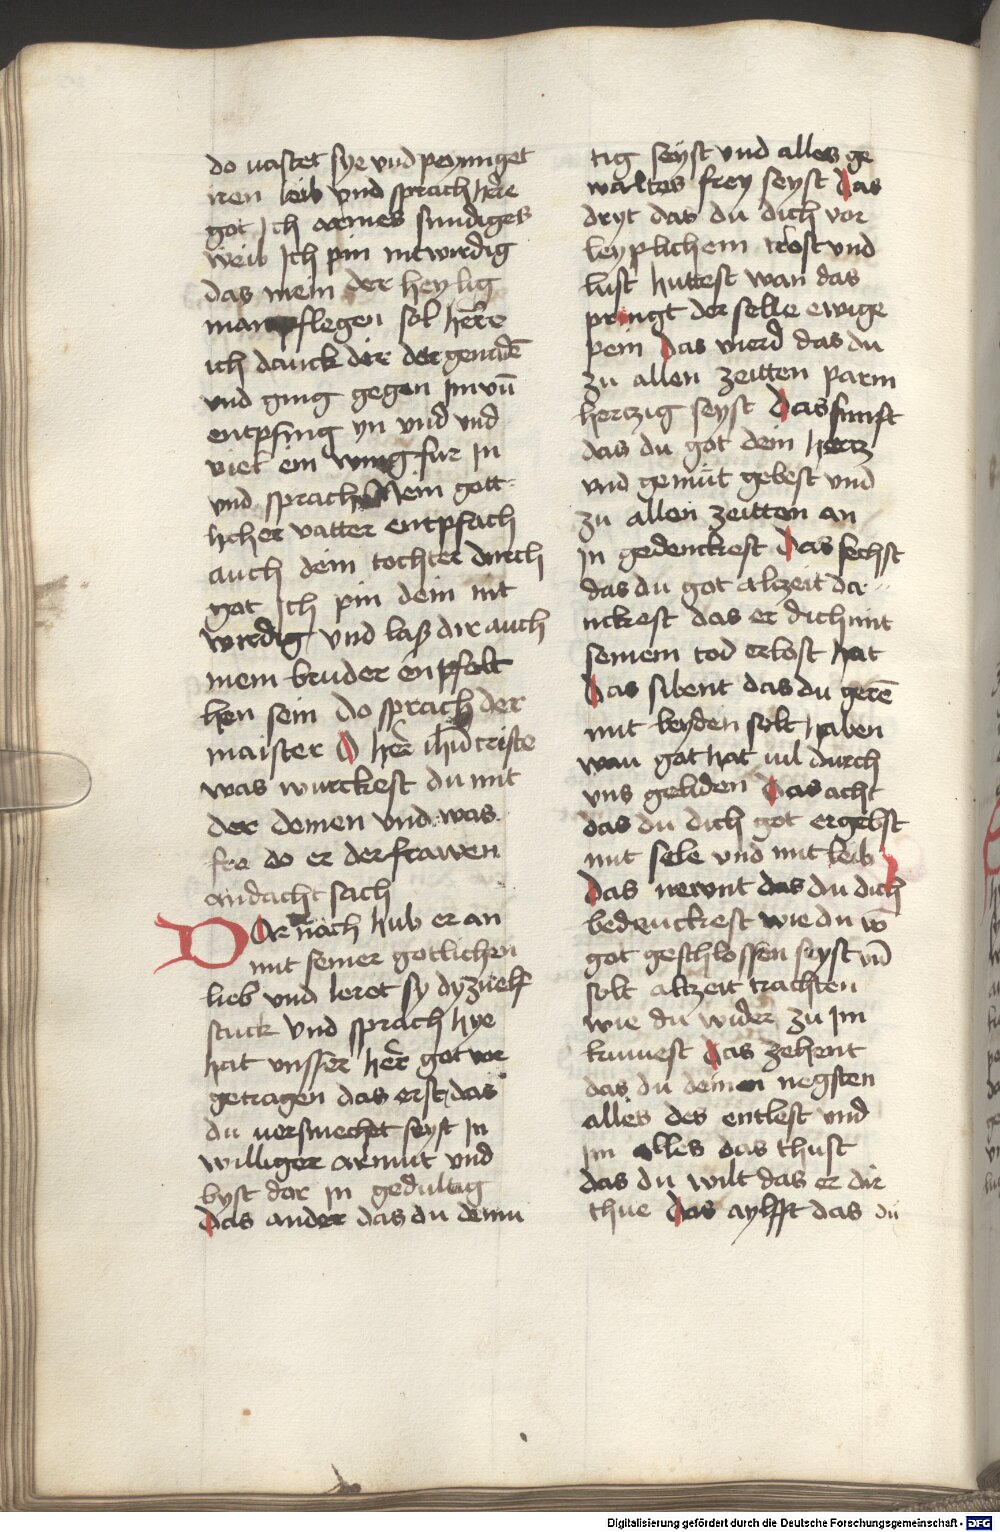 do vastet sye vnd peyniget
iren leib vnd sprach here
got Ich armes sundiges
weib Ich pin nit wirdig
das mein der heylig
man pflegen sol herre
ich danck dir der genadē
vnd ging gegen im vn̄
entpfing yn vnd vnd
viel ein wing fur In
vnd sprach Mein gott
licher vatter entpfach
auch dein tochter durch
got Ich pin dein nit
wirdig vnd laß dir auch
mein bruder enpfolt
hen sein Do sprach der
maister O her ihū criste
was wurckest du mit
der deinen vnd was
fre do er der frawen
andacht sach
Dar nach hub er an
mit seiner gotlichen
lieb vnd leret sy dy zwelf
stuck vnd sprach hye
hat vnsser her got vor
getragen das erst das
du versmechet seyst In
williger armut vnd
byst dor in gedultig
Das ander das du demu
tig seyst vnd alles ge
waltes frey seyst Das
dryt das du dich vor
leyplichem trost vnd
lust huttest wan das
pringt der selle ewige
pein Das vierd das du
zu allen zeitten parm
hertzig seyst Das funft
das du got dein hertz
vnd gemut gebest vnd
zu allen zeitten an
in gedenckest Das sechst
das du got alzeit da
nckest das er dich mit
seinem tod erlost hat
Das sibent das du gerē
mit leyden solt haben
wan got hat vil durch
vns geliden Das acht
das du dich got ergebst
mit sele vnd mit leib
Das newnt das du dich
bedrucKest wie du vō
got geschlossen seyst vn̄
solt altzeit trachten
wie du wider zu Im
kumest Das zehent
das du deinen negsten
alles des entlest vnd
im alles das thust
das du wilt das er dir
thue Das aylfft das du
Digitalisierung gefördert durch die Deutsche Forschungsgemeinschaft - DFG